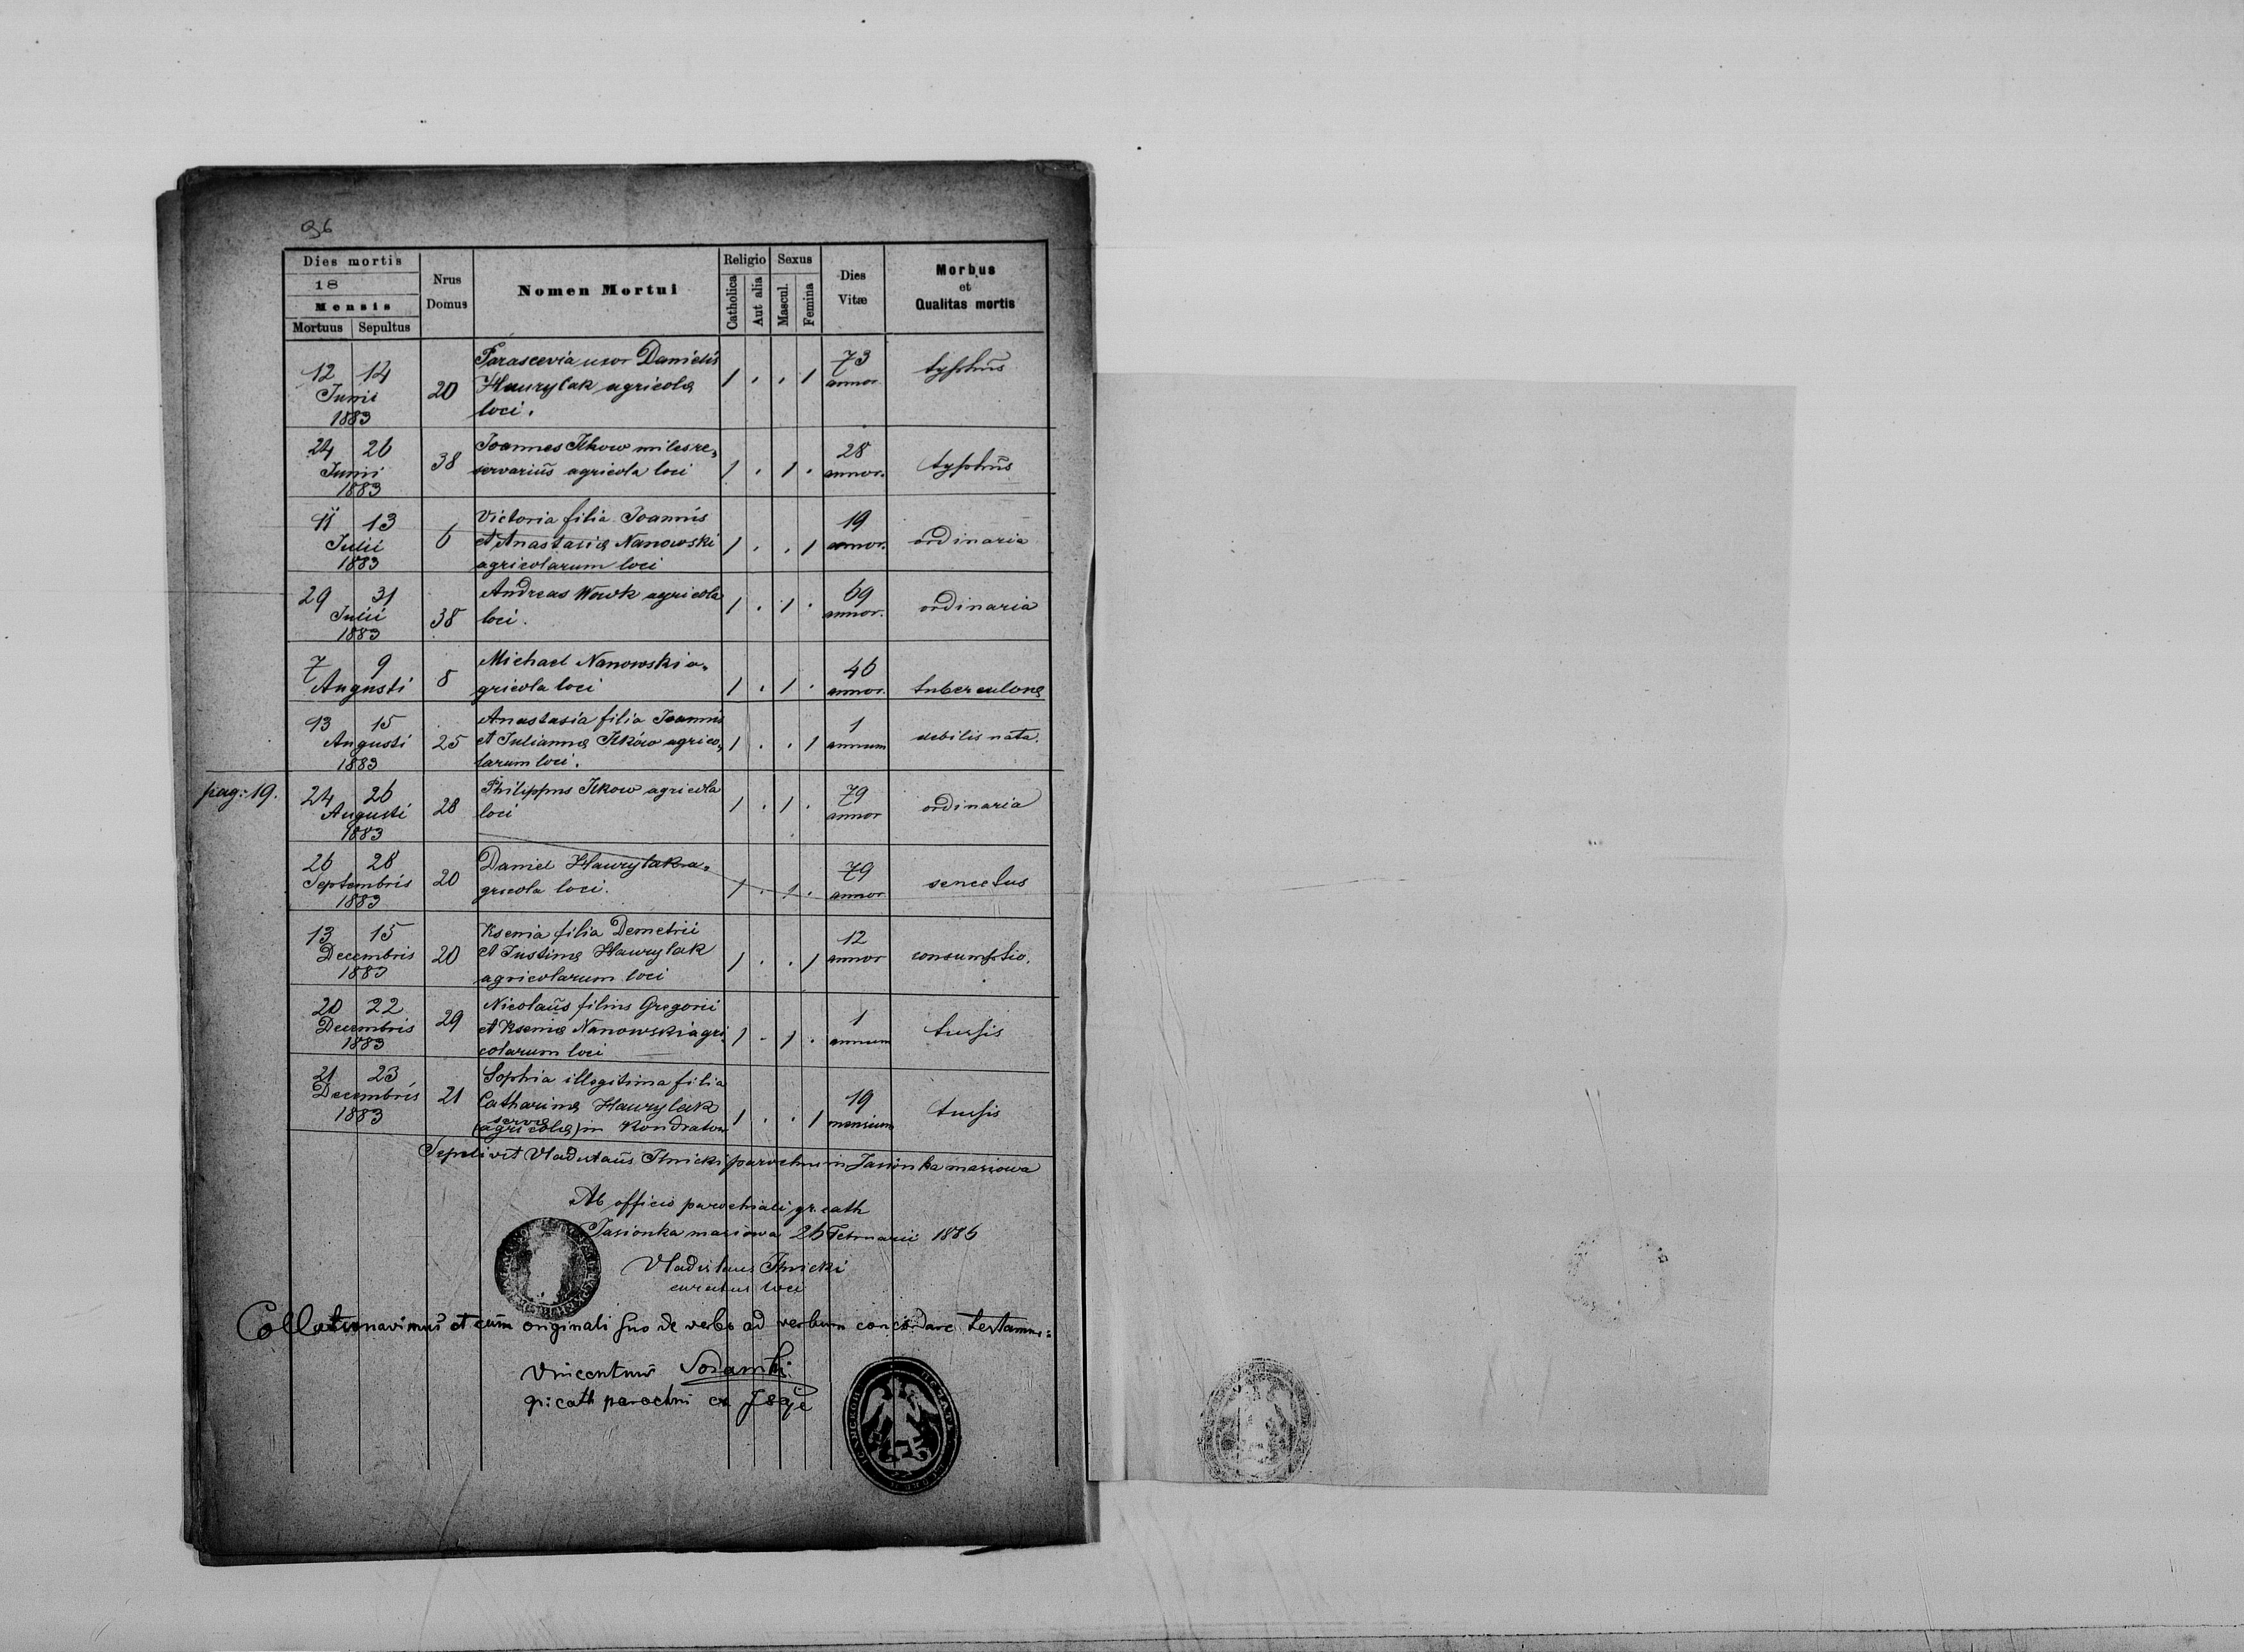 96
Dies mortis
18
Mensis
Mortuus Sepultus
Nrus
Domus
Nomen Mortui
Religio
Catholica
Aut alia
Sexus
Mascul.
Femina
Dies
Vitæ
Morbus
et
Qualitas mortis
12 14
Junii
1883
20
Parascevia uxor Danielis
Hawrylak agricolæ
loci.
1 . . 1
73
annor
typhus
24 26
Junii
1883
38
Joannes Ilkow miles re„
servariŭs agricola loci
1 . 1 .
28
annor.
typhŭs
11 13
Julii
1883
6
Victoria filia Joannis
et Anastasiæ Nanowski
agricolarum loci
1 . . 1
19
annor.
ordinaria
29 31
Julii
1883
38
Andreas Wowk agricola
loci.
1 . 1 .
69
annor.
ordinaria
7 9
Augusti
8
Michael Nanowski a„
gricola loci
1 . 1 .
46
annor.
tuberculonæ
13 15
Augusti
1883
25
Anastasia filia Joannis
et Juliannæ Ilków agrico„
larum loci.
1 . . 1
1
annum
debilis nata.
pag: 19.
24 26
Augusti
1883
28
Philippus Ilkow agricola
loci
1 . 1 .
79
annor
ordinaria
26 28
Septembris
1883
20
Daniel Hawrylak a„
gricola loci.
1 . 1 .
79
annor.
senectus
13 15
Decembris
1883
20
Ksenia filia Demetrii
et Justinæ Hawrylak
agricolarum loci
1 . . 1
12
annor
consumptio.
20 22
Decembris
1883
29
Nicolaŭs filius Gregorii
et Kseniæ Nanowski agri
colarum loci
1 . 1 .
1
annum
tussis
21 23
Decembris
1883
21
Sophia illegitima filia
Catharinæ Hawrylak
servæ
(agricolæ) in Kondratow
1 . . 1
19
mensium
tussis
Sepelivit Vladislaŭs Ilnicki parochus in Jasionka masiowa
Ab officio parochiali gr. cath
Jasionka masiowa 26 Februarii 1886
Vladislaus Ilnicki
curatus loci
Collationavimus et cum originali suo de verbo ad verbum concordare testamur:
Vincentius
gr: cath parochus